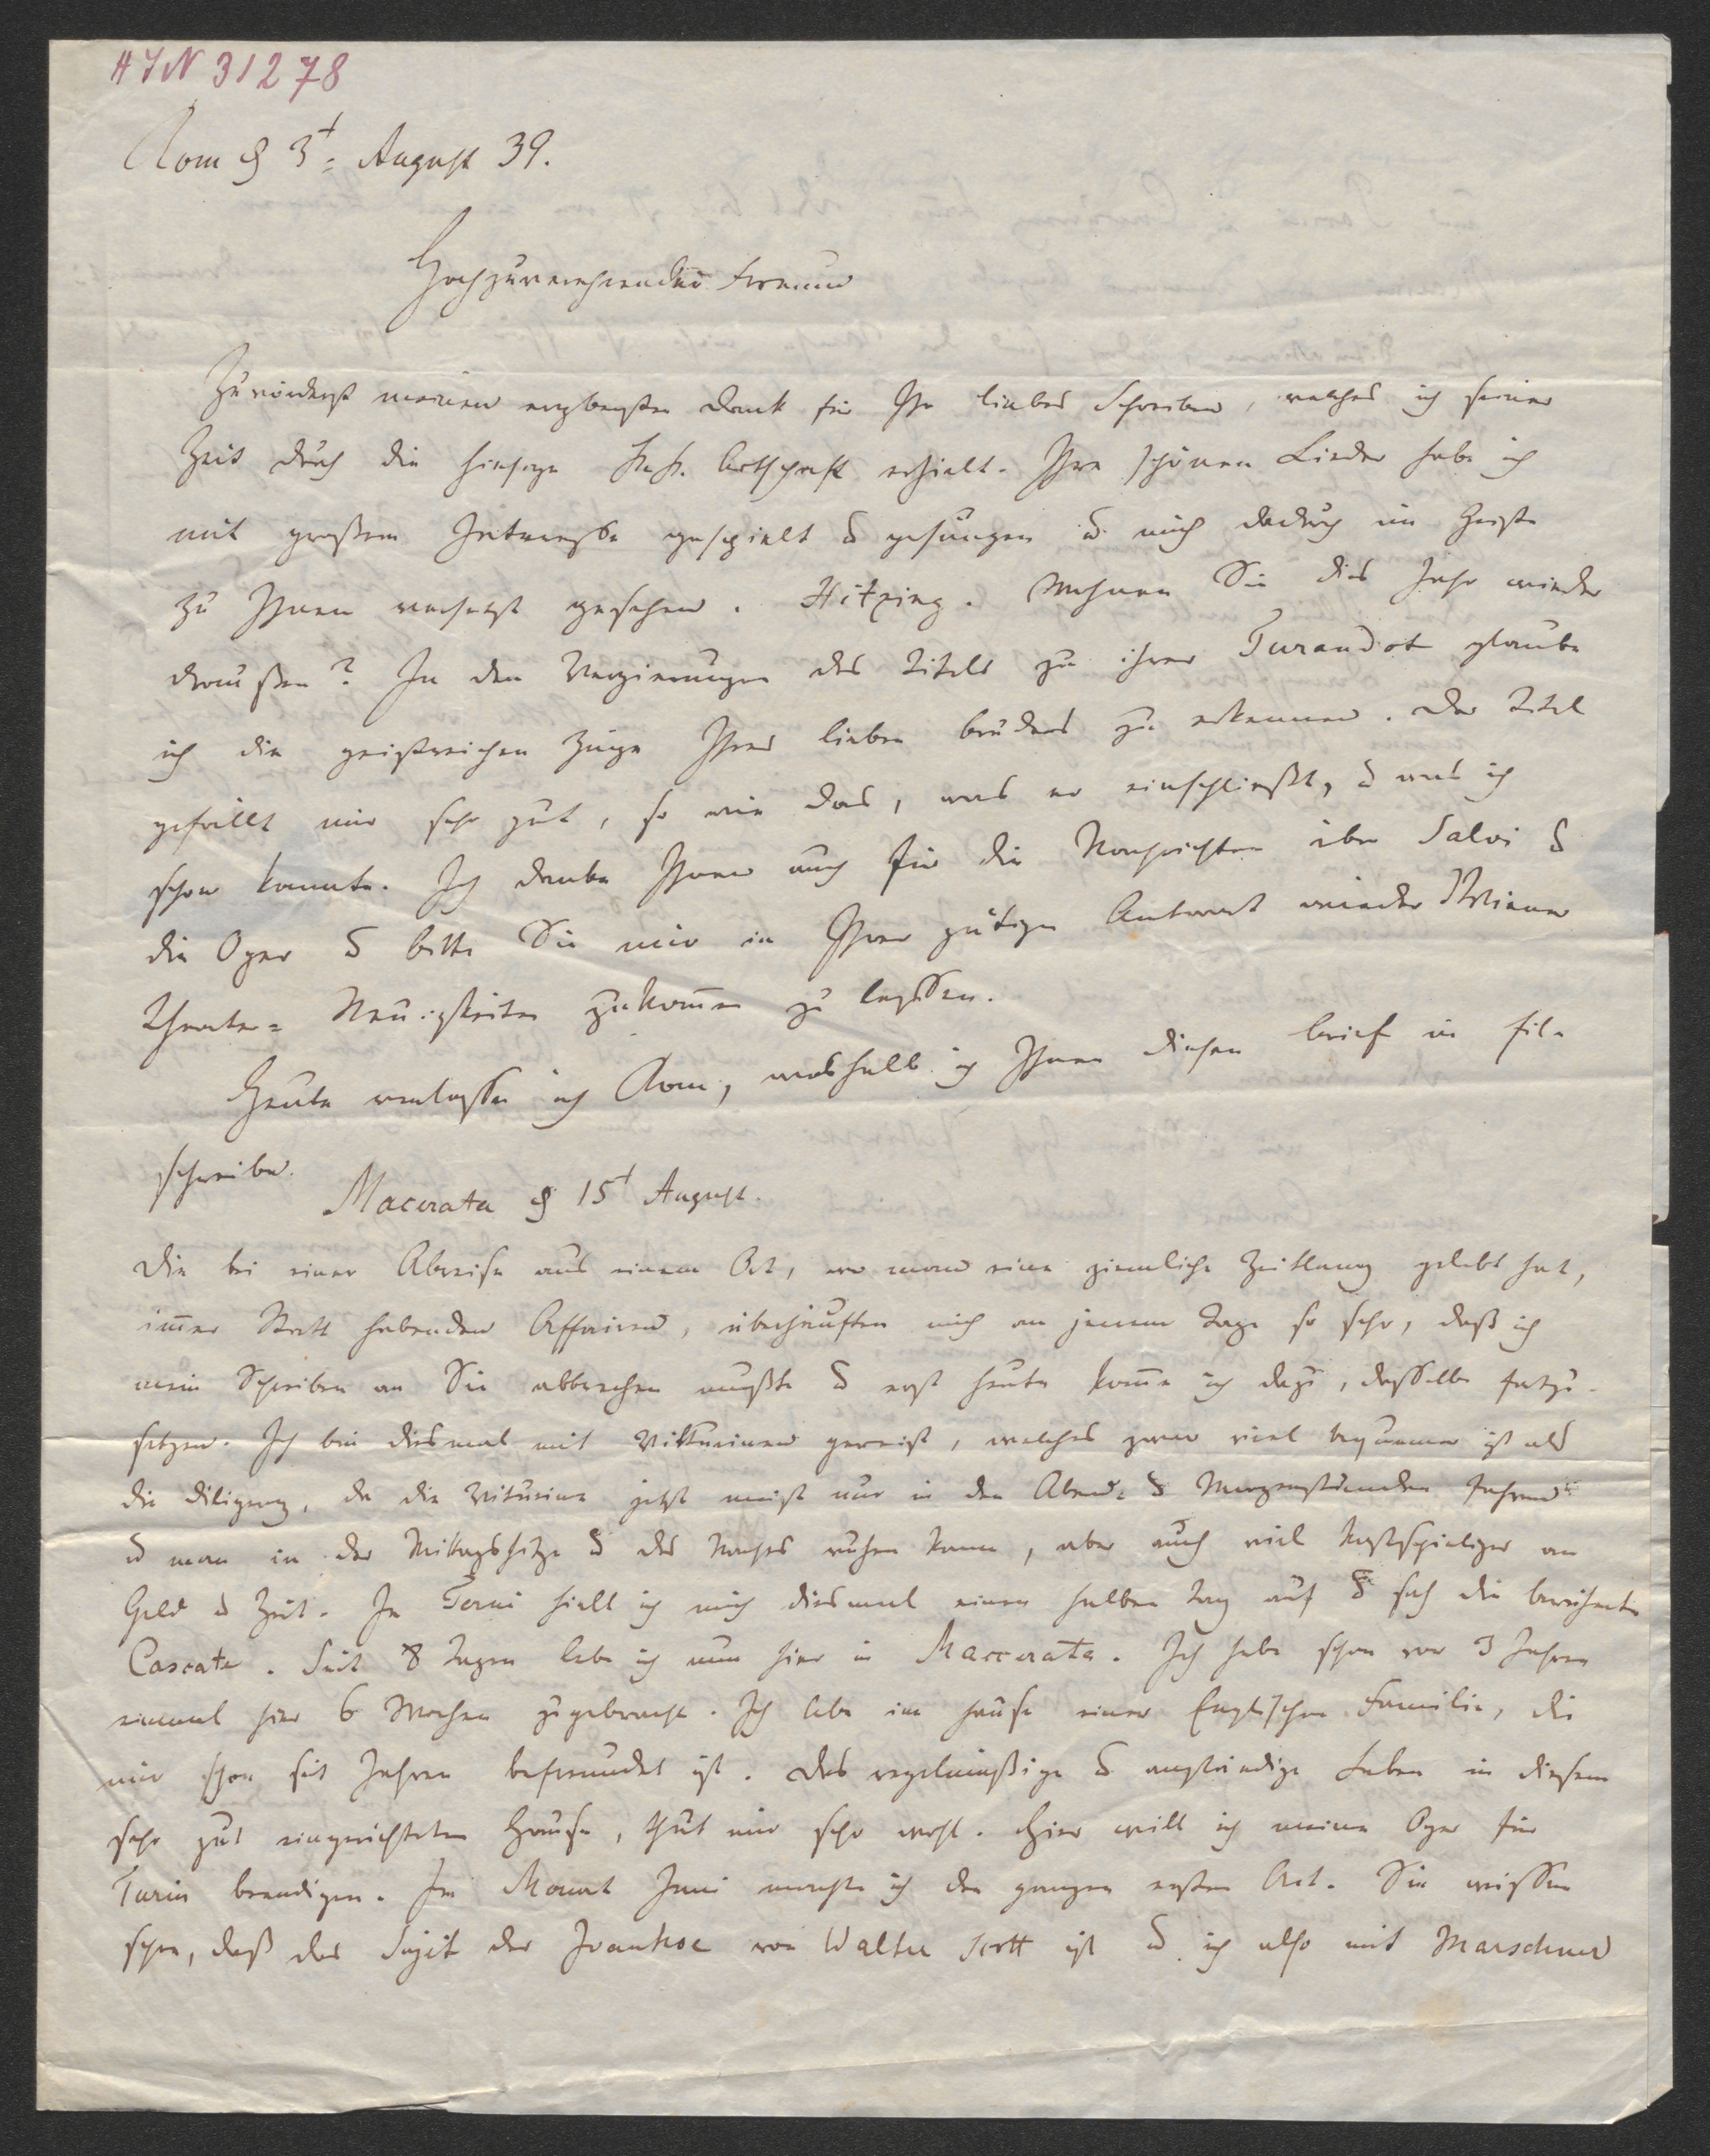 HIN 31278
Rom d 3t= August 39.
Hochzuverehrender Freund
Zuvörderst meinen ergebensten Dank für Ihr liebes Schreiben, welches ich seiner
Zeit durch die hiesige Botschaft erhielt. Ihre schönen Lieder habe ich
mit großem Interesse gespielt & gesungen & mich dadurch im Geiste
zu Ihnen versetzt gesehen. Hitzing. Wohnen Sie dies Jahr wieder
draußen? In den Verzierungen des Titels zu ihrer Turandot glaube
ich die geistreichen Züge Ihres lieben Bruders zu erkennen. Der Titel
gefällt mir sehr gut, so wie das, was er einschließt, & was ich
schon kannte. Ich danke Ihnen auch für die Nachrichten über Salvi &
die Oper & bitte Sie mir in Ihrer gütigen Antwort wieder Wiener
Theater= Neuigkeiten zukom̄en zu lassen.
Heute verlasse ich Rom, weshalb ich Ihnen diesen Brief in Eile
schreibe.
Macerata d 15t August.
Die bei einer Abreise aus einem Ort, wo man eine ziemliche Zeitlang gelebt hat,
im̄er Statt habenden Affairen, überhäuften mich an jenem Tage so sehr, daß ich
mein Schreiben an Sie abbrechen mußte & erst heute kom̄e ich dazu, dasselbe fortzu-
setzen. Ich bin diesmal mit Vitturinen gereist, welches zwar viel bequemer ist als
die Diligenz, da die Vitturine jetzt meist nur in den Abend= & Morgenstunden fahren
& man in der Mittagshitze & des Nachts ruhen kann, aber auch viel kostspieliger an
Geld & Zeit. In Terni hielt ich mich diesmal einen halben Tag auf & sah die berühmte
Cascate. Seit 8 Tagen lebe ich nun hier in Maccerata. Ich habe schon vor 3 Jahren
einmal hier 6 Wochen zugebracht. Ich lebe im Hause einer Englischen Familie, die
mir schon seit Jahren befreundet ist. Das regelmäßige & anständige Leben in diesem
sehr gut eingerichteten Hause, thut mir sehr wohl. Hier will ich meine Oper für
Turin beendigen. Im Monat Juni machte ich den ganzen ersten Act. Sie wissen
schon, daß das Sujet der Ivanhoe von Walter Scott ist & ich also mit Marschner